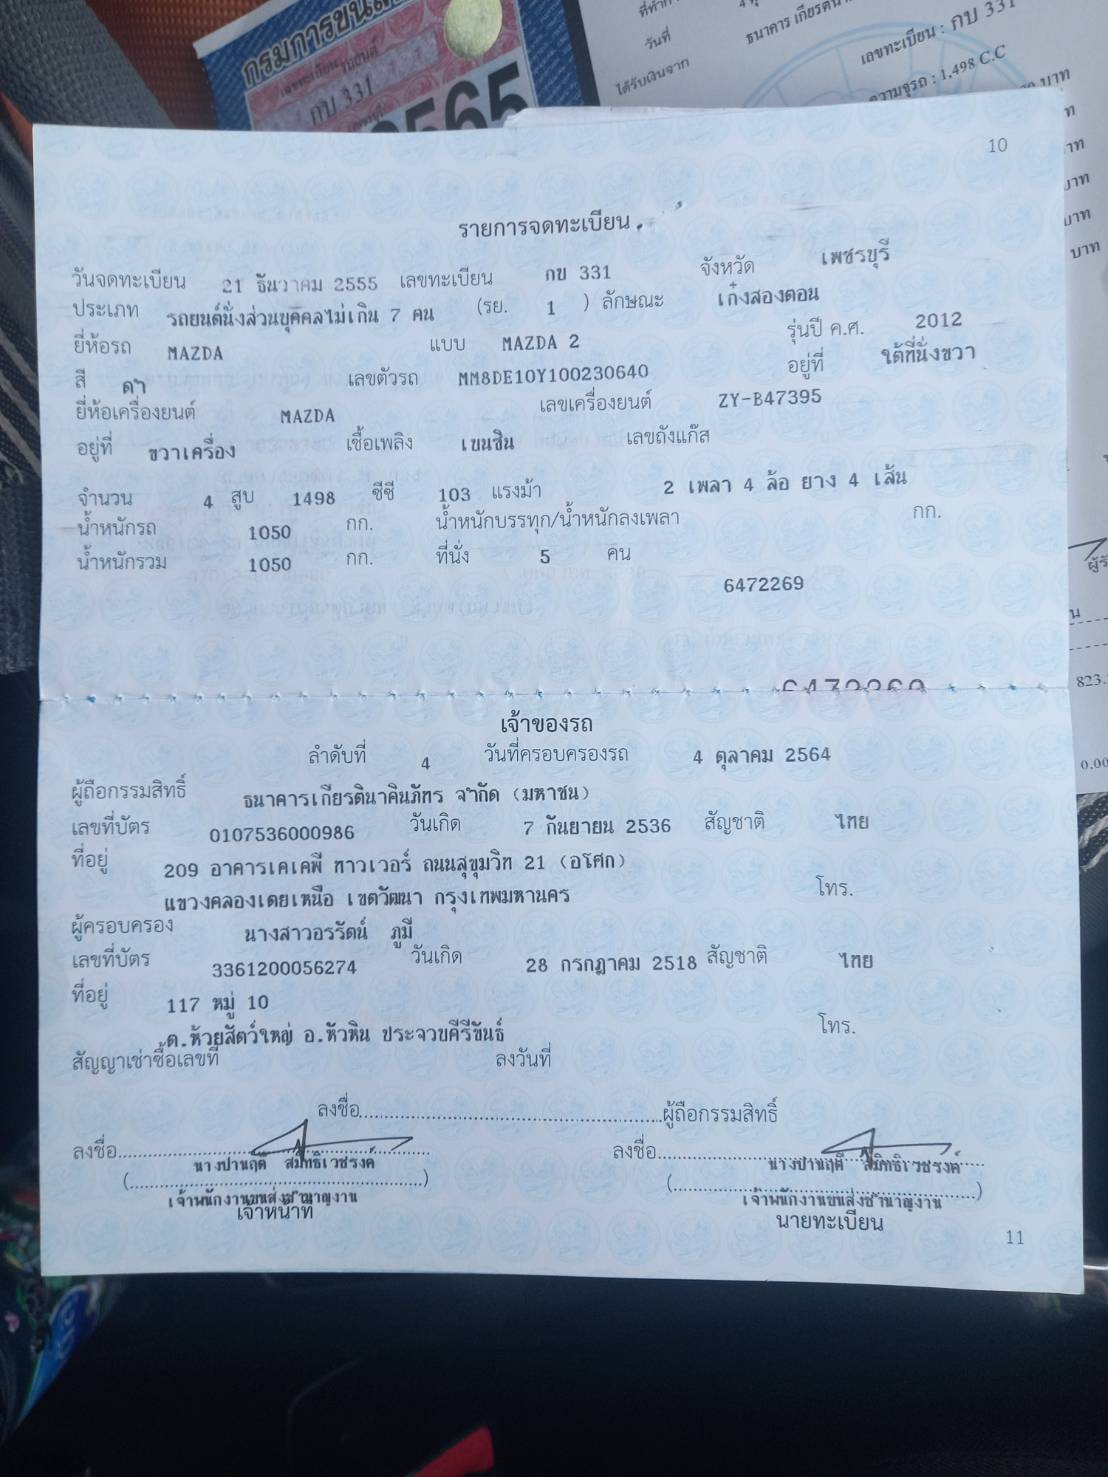 กรมการขนส่
กบ 331
2565
ที่ทำก
วันที่
ได้รับเงินจาก
ธนาคาร เกียรตินา
เลขทะเบียน : กบ 331
ความจุรถ : 1,498 C.C
บาท
บาท
บาท
10
รายการจดทะเบียน
วันจดทะเบียน 21 ธันวาคม 2555 เลขทะเบียน กบ 331 จังหวัด เพชรบุรี
ประเภท รถยนต์นั่งส่วนบุคคลไม่เกิน 7 คน (รย. 1 ) ลักษณะ เก๋งสองตอน
ยี่ห้อรถ MAZDA แบบ MAZDA 2 รุ่นปี ค.ศ. 2012
สี ดำ เลขตัวรถ MM8DE10Y100230640 อยู่ที่ ใต้ที่นั่งขวา
ยี่ห้อเครื่องยนต์ MAZDA เลขเครื่องยนต์ ZY-B47395
อยู่ที่ ขวาเครื่อง เชื้อเพลิง เบนซิน เลขถังแก๊ส
จำนวน 4 สูบ 1498 ซีซี 103 แรงม้า 2 เพลา 4 ล้อ ยาง 4 เส้น
น้ำหนักรถ 1050 กก. น้ำหนักบรรทุก/น้ำหนักลงเพลา กก.
น้ำหนักรวม 1050 กก. ที่นั่ง 5 คน
6472269
6472269
เจ้าของรถ
ลำดับที่ 4 วันที่ครอบครองรถ 4 ตุลาคม 2564
ผู้ถือกรรมสิทธิ์ ธนาคารเกียรตินาคินภัทร จำกัด (มหาชน)
เลขที่บัตร 0107536000986 วันเกิด 7 กันยายน 2536 สัญชาติ ไทย
ที่อยู่ 209 อาคารเคเคพี ทาวเวอร์ ถนนสุขุมวิท 21 (อโศก)
แขวงคลองเตยเหนือ เขตวัฒนา กรุงเทพมหานคร โทร.
ผู้ครอบครอง นางสาวอรรัตน์ ภูมี
เลขที่บัตร 3361200056274 วันเกิด 28 กรกฎาคม 2518 สัญชาติ ไทย
ที่อยู่ 117 หมู่ 10
ต.ห้วยสัตว์ใหญ่ อ.หัวหิน ประจวบคีรีขันธ์ โทร.
สัญญาเช่าซื้อเลขที่ ลงวันที่
ลงชื่อ ผู้ถือกรรมสิทธิ์
ลงชื่อ ลงชื่อ
นางปานฤดี สมิทธิเวชรงค์ นางปานฤดี สมิทธิเวชรงค์
เจ้าพนักงานขนส่งชำนาญงาน เจ้าพนักงานขนส่งชำนาญงาน
เจ้าหน้าที่ นายทะเบียน
11